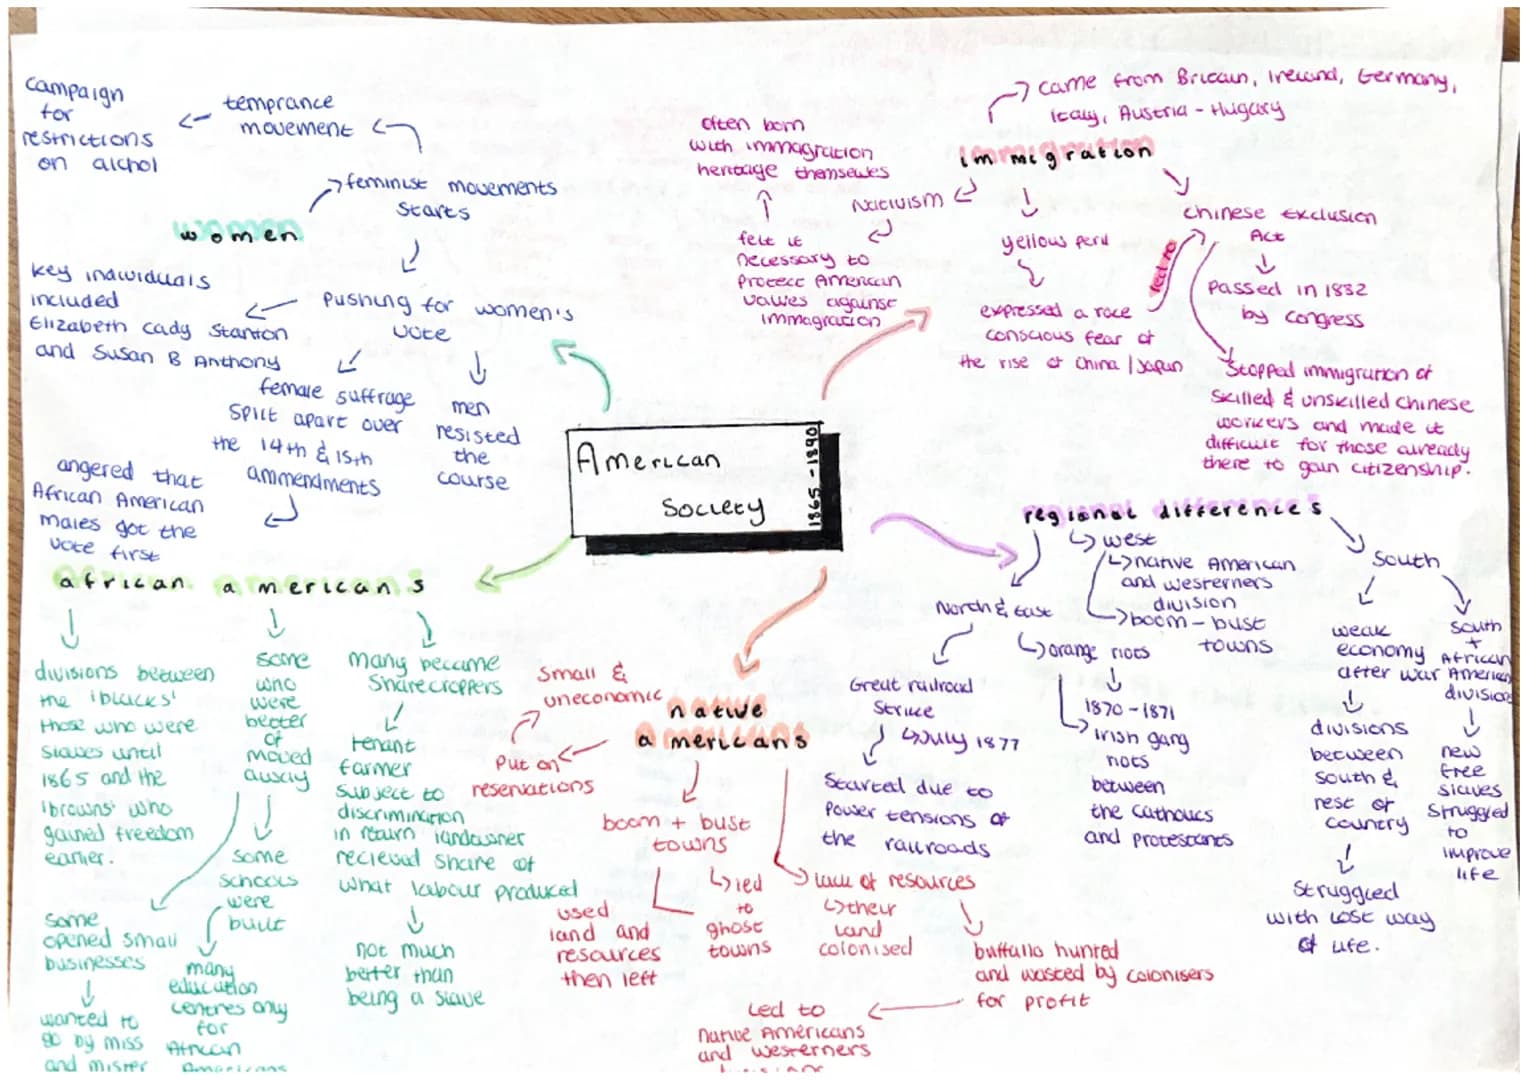 American
Society
1865-1890
women
feminist movements
starts
temprance
movement
campaign
for
restrictions
on alchol
pushing for women's
vote
key individuals
included
Elizabeth Cady Stanton
and Susan B Anthony
female suffrage
split apart over
the 14th & 15th
ammendments
men
resisted
the
course
angered that
African American
males got the
vote first
immigration
came from Britain, Ireland, Germany,
Italy, Austria-Hugary
Nativism
often born
with immagration
heritage themselves
felt it
necessary to
protect American
values against
immagration
yellow peril
expressed a race
conscious fear of
the rise of China / Japan
led to
Chinese Exclusion
Act
Passed in 1882
by congress
Stopped immigration of
skilled & unskilled Chinese
workers and made it
difficult for those already
there to gain citizenship.
regional differences
west
native American
and westerners
division
boom-bust
towns
North & East
Great railroad
Strike
July 1877
Started due to
power tensions of
the railroads
orange riots
1870-1871
Irish gang
riots
between
the Catholics
and protestants
South
weak
economy
after war
divisions
between
south &
rest of
country
struggled
with lost way
of life.
South
+
African
American
division
new
free
slaves
struggled
to
improve
life
african americans
divisions between
the 'blacks'
those who were
slaves until
1865 and the
'browns' who
gained freedom
earlier.
some
who
were
better
of
moved
away
some
opened small
businesses
wanted to
go by miss
and mister
some
schools
were
built
many
education
centres only
for
African
Americans
many became
Sharecroppers
tenant
farmer
subject to
discrimination
in return landowner
recieved share of
what labour produced
not much
better than
being a slave
native
americans
Put on
reservations
Small &
uneconomic
boom + bust
towns
led
to
ghost
towns
used
land and
resources
then left
lack of resources
their
land
colonised
buffallo hunted
and wasted by colonisers
for profit
Led to
Native Americans
and westerners